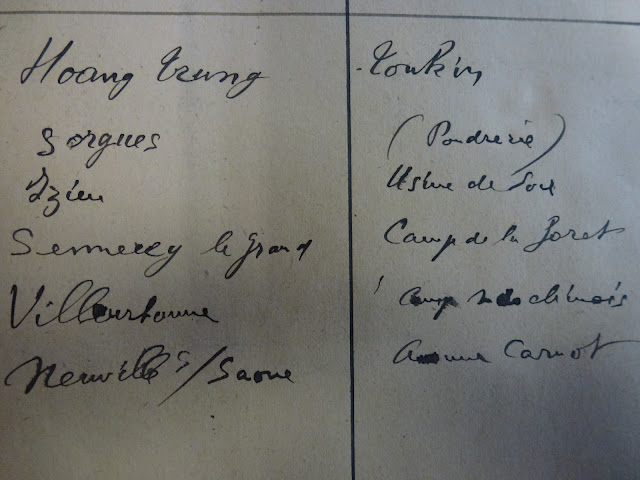 Hoang Trung Tonkin
Sorgues (Poudrerie)
Izieu Usine de Soie
Sennecey le grand Camp de la Foret
Villeurbanne Camp Indochinois
Neuville s/Saone Carnot